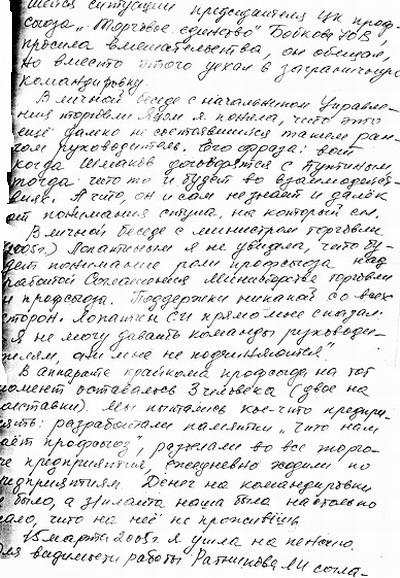 шейся ситуации председателя ЦК проф-
союза "Торговое единство" Бойкова ЮВ,
просила вмешательства, он обещал,
но вместо этого уехал в заграничную
командировку.
В личной беседе с начальником Управле-
ния торговли я поняла, что это
ещё далеко не состоявшийся таком ран-
гом руководитель. Его фраза: вот
когда Шмаков договорятся с Путиным
тогда что то и будет во взаимодейст-
виях. А что, он и сам не знает и далёк
от понимания стула, на который сел.
В личной беседе с министром торговли
2005г.) Лопатиным я не увидела, что бу-
дет понимание роли профсоюза над
работой Соглашения Министерства торговли
и профсоюза. Поддержки никакой со всех
сторон. Лопатин СИ прямо мне сказал:
"Я не могу давать команды руководи-
телям, они мне не подчиняются"
В аппарате крайкома профсоюза на тот
момент оставалось 3 человека (двое на
полставки). Мы пытались кое-что предпри-
нять: разработали памятки "Что нам
даёт профсоюз", разослали во все торго-
ые предприятия, ежедневно ходили по
предприятиям Денег на командировки
не было, а зарплата наша была настолько
мало, что на неё не проживёшь
15 марта 2005г я ушла на пенсию.
Для видимости работы Ратникова ЛИ согла-